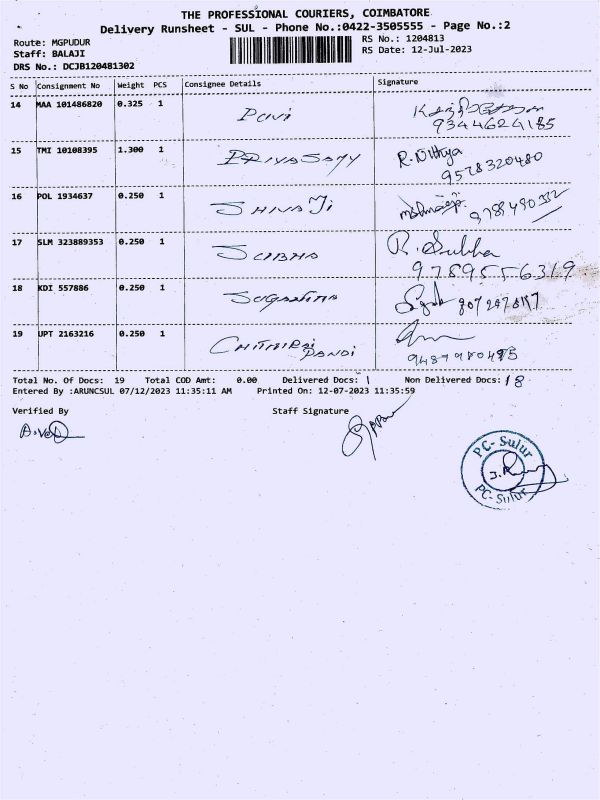 THE PROFESSIONAL COURIERS, COIMBATORE
Delivery Runsheet - SUL - Phone No.:0422-3505555 - Page No.:2
Route: MGPUDUR
Staff: BALAJI
DRS No.: DCJB120481302
RS No.: 1204813
RS Date: 12-Jul-2023
S No Consignment No Weight PCS Consignee Details Signature
14 MAA 101486820 0.325 1 Pavi
9344624185
15 TMI 10108395 1.300 1 PRIYASAMY R. Nithya
9578320480
16 POL 1934637 0.250 1 SHIVAJI
17 SLM 323889353 0.250 1 SUBHA R. Subha
9789556319
18 KDI 557886 0.250 1
19 UPT 2163216 0.250 1 CHITHIRAI PANDI
Total No. Of Docs: 19 Total COD Amt: 0.00 Delivered Docs: 1 Non Delivered Docs: 18
Entered By :ARUNCSUL 07/12/2023 11:35:11 AM Printed On: 12-07-2023 11:35:59
Verified By Staff Signature
PC- Sulur
PC- Sulur